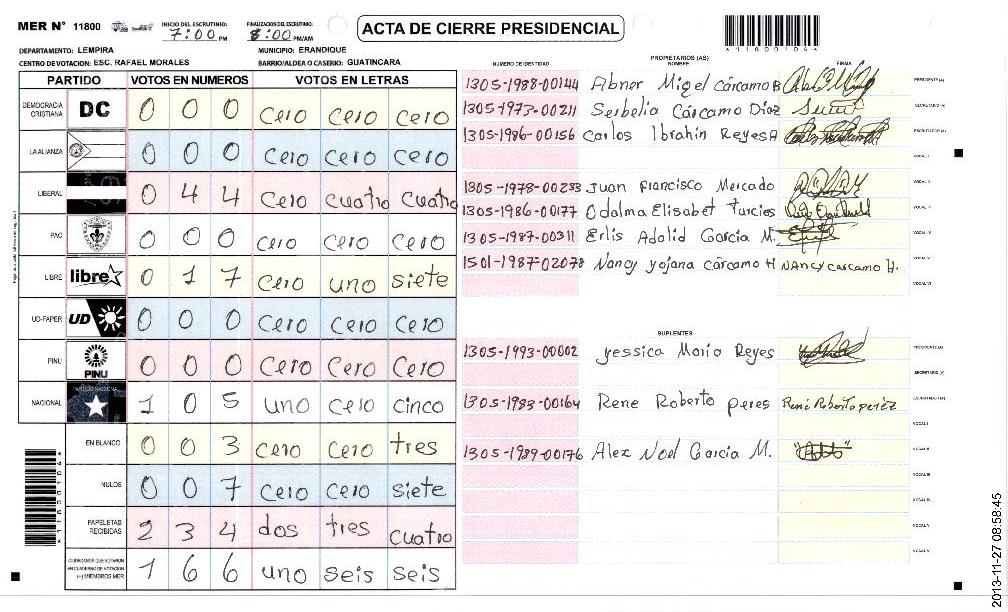 MER N° 11800 INICIO DEL ESCRUTINIO: 7:00 PM FINALIZACION DEL ESCRUTINIO: 8:00 PM/AM ACTA DE CIERRE PRESIDENCIAL
*11800104*
DEPARTAMENTO: LEMPIRA MUNICIPIO: ERANDIQUE
CENTRO DE VOTACION: ESC. RAFAEL MORALES BARRIO/ALDEA O CASERIO: GUATINCARA
PARTIDO VOTOS EN NUMEROS VOTOS EN LETRAS
DEMOCRACIA CRISTIANA DC 0 0 0 cero cero cero
LA ALIANZA 0 0 0 cero cero cero
LIBERAL 0 4 4 cero cuatro cuatro
PAC 0 0 0 cero cero cero
LIBRE libre 0 1 7 cero uno siete
UD-FAPER UD 0 0 0 cero cero cero
PINU PINU 0 0 0 cero cero cero
NACIONAL 1 0 5 uno cero cinco
EN BLANCO 0 0 3 cero cero tres
NULOS 0 0 7 cero cero siete
PAPELETAS RECIBIDAS 2 3 4 dos tres cuatro
CIUDADANOS QUE VOTARON EN CUADERNO DE VOTACION (+) MIEMBROS MER 1 6 6 uno seis seis
*11800104*
PROPRIETARIOS (AS)
NUMERO DE IDENTIDAD NOMBRE FIRMA
1305-1988-00144 Abner Migel Cárcamo B PRESIDENTE (A)
1305-1973-00211 Serbelia Cárcamo Díaz SECRETARIO (A)
1305-1986-00156 Carlos Ibrahin Reyes A ESCRUTADOR (A)
VOCAL I
1305-1978-00233 Juan francisco Mercado VOCAL II
1305-1986-00177 Odalma Elisabet Turcios VOCAL III
1305-1987-00311 Erlis Adalid García M. VOCAL IV
1501-1987-02078 Nancy yojana cárcamo H NANCY carcamo H. VOCAL V
VOCAL VI
SUPLENTES
1305-1993-00002 yessica María Reyes PRESIDENTE (A)
SECRETARIO (A)
1305-1983-00164 Rene Roberto peres René Roberto peréz ESCRUTADOR (A)
VOCAL I
1305-1989-00176 Alez Noel García M. VOCAL II
VOCAL III
VOCAL IV
VOCAL V
VOCAL VI
2013-11-27 08:58:45